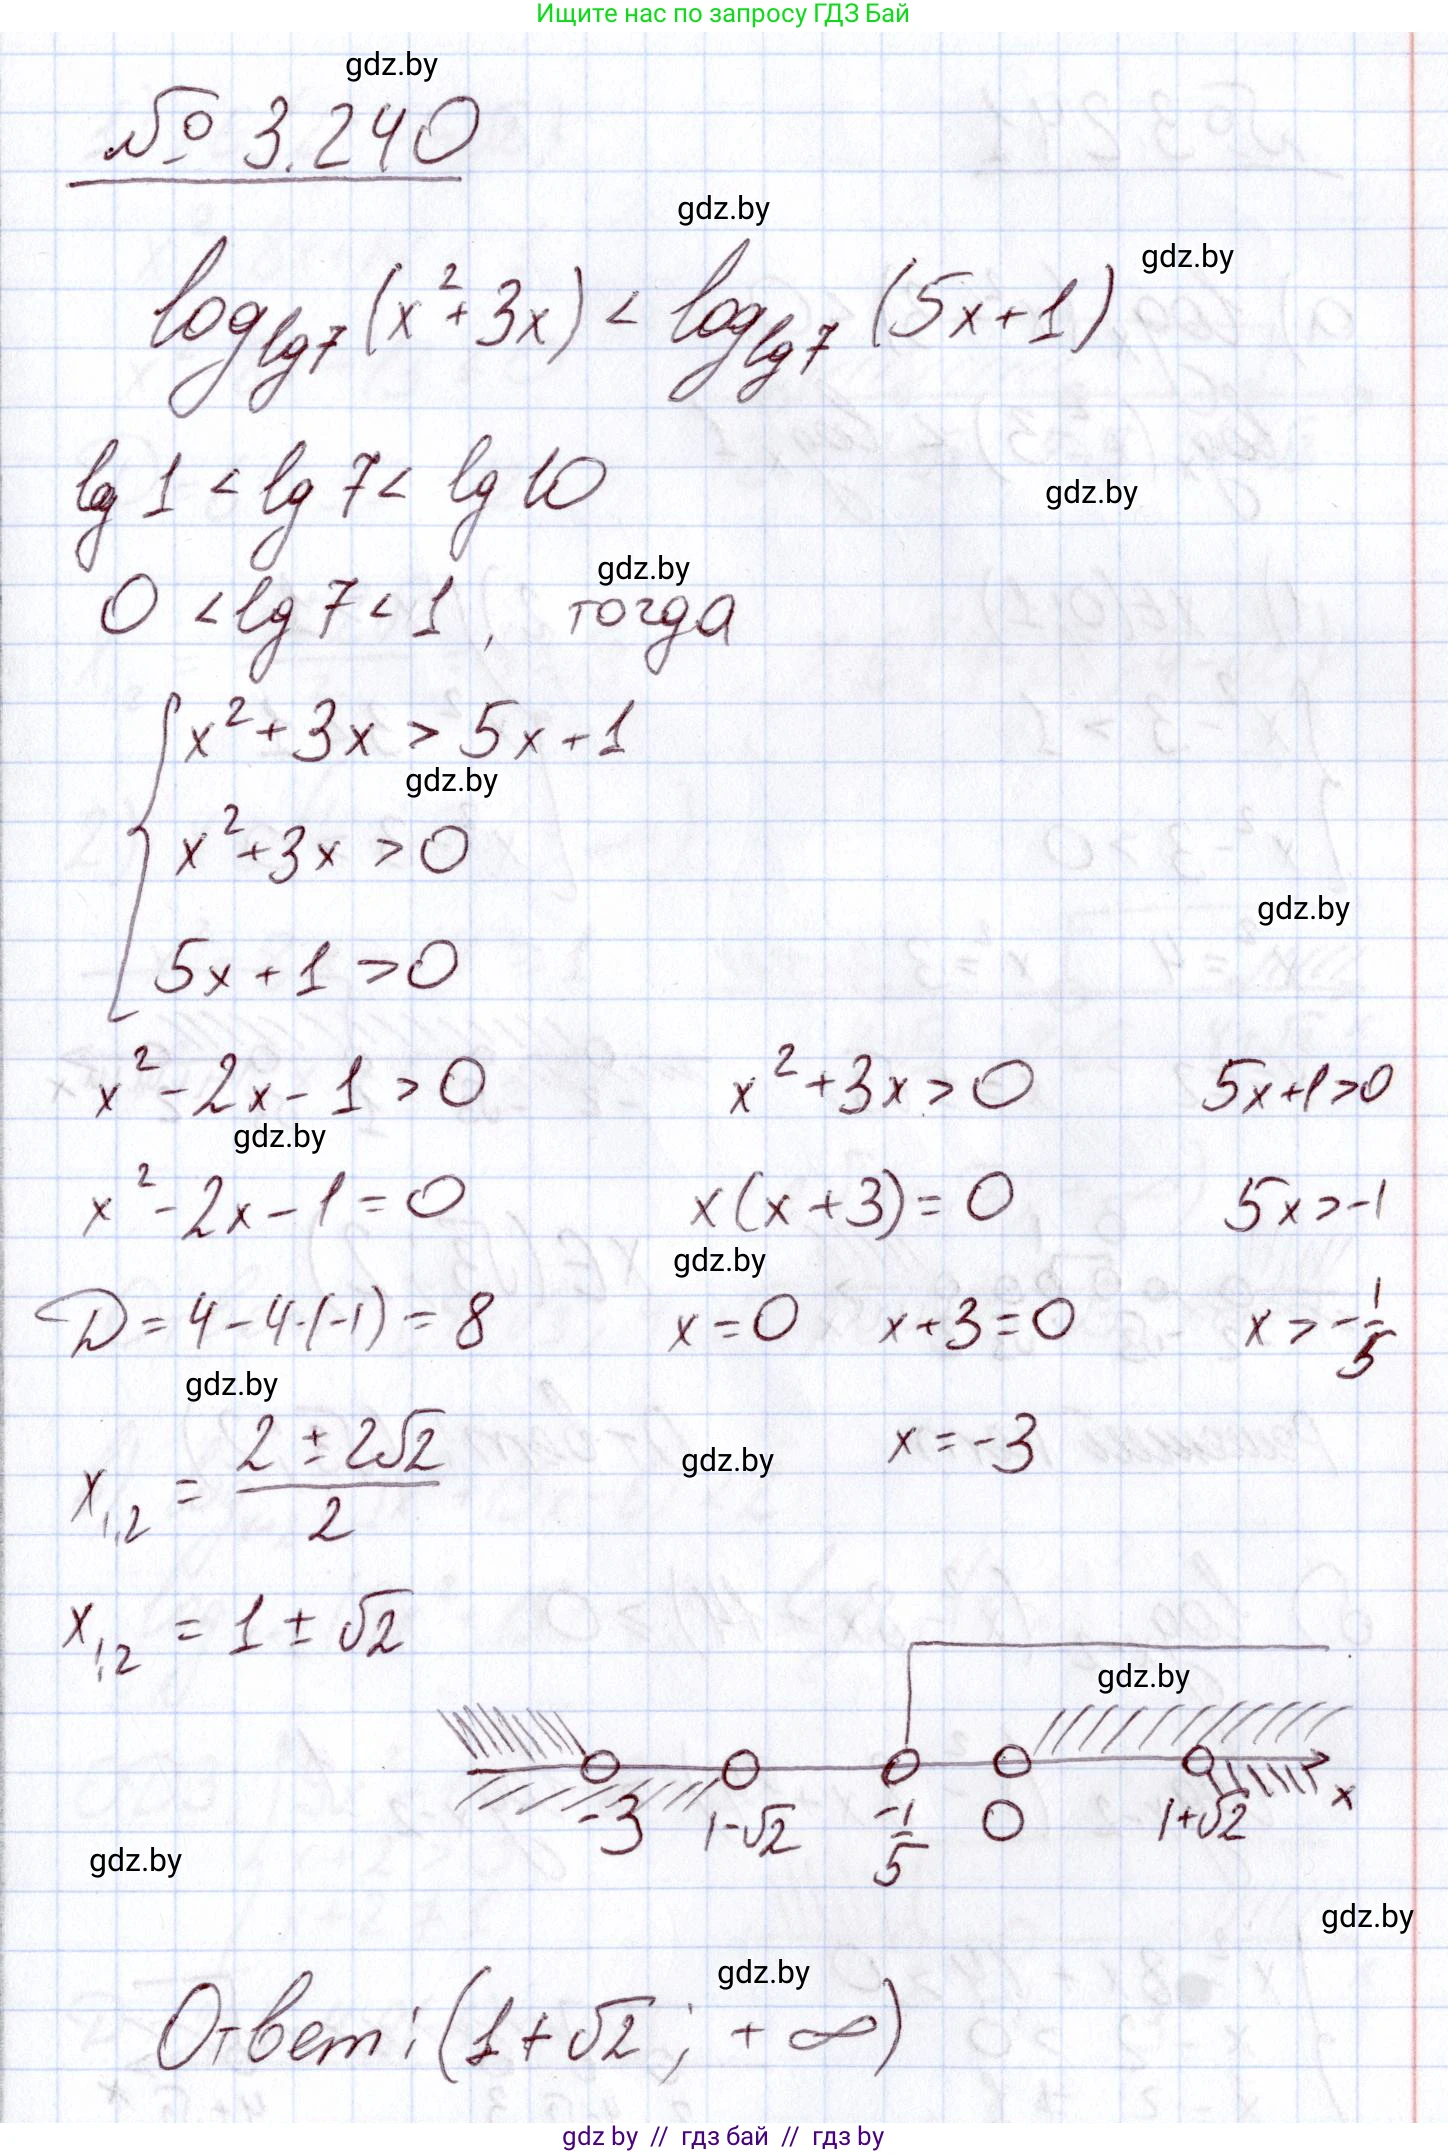 Ищите нас по запросу ГДЗ Бай
gdz.by
№ 3.240
gdz.by
gdz.by
log_{lg7}(x²+3x) < log_{lg7}(5x+1)
lg 1 < lg 7 < lg 10
gdz.by
gdz.by
0 < lg 7 < 1, тогда
{ x²+3x > 5x+1
gdz.by
x²+3x > 0
gdz.by
5x+1 > 0
x²-2x-1 > 0 x²+3x > 0 5x+1>0
gdz.by
x²-2x-1 = 0 x(x+3) = 0 5x>-1
gdz.by
D = 4-4·(-1) = 8 x = 0 x+3=0 x > -1/5
gdz.by
x_{1,2} = (2 ± 2√2)/2 x = -3
gdz.by
x_{1,2} = 1 ± √2
gdz.by
-3 1-√2 -1/5 0 1+√2 x
gdz.by
gdz.by
gdz.by
Ответ: (1+√2; +∞)
gdz by // гдз бай // гдз by